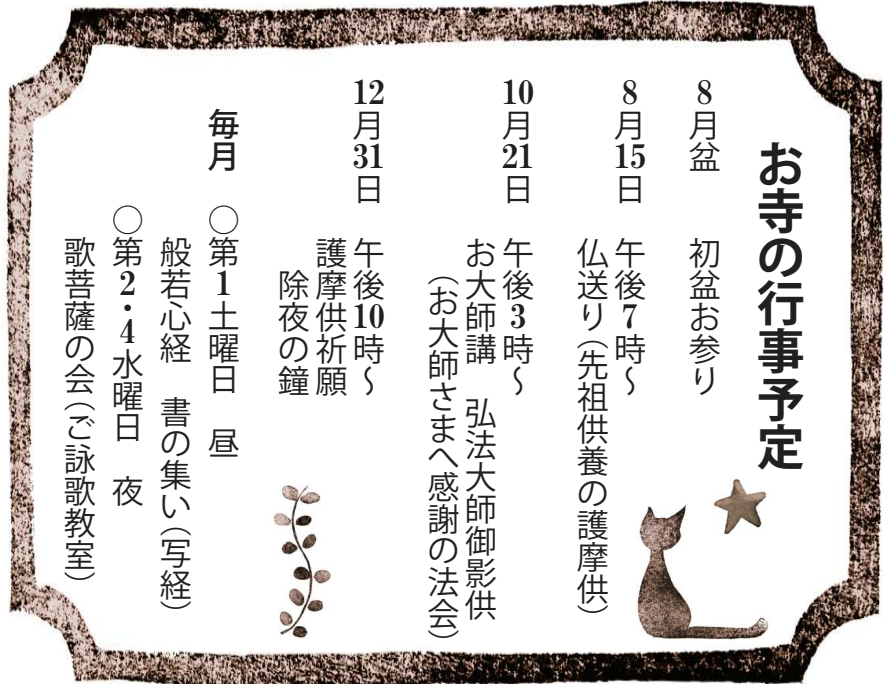 お寺の行事予定
8月盆　初盆お参り
8月15日　午後7時～
仏送り（先祖供養の護摩供）
10月21日　午後3時～
お大師講　弘法大師御影供
（お大師さまへ感謝の法会）
12月31日　午後10時～
護摩供祈願
除夜の鐘
毎月　○第1土曜日　昼
般若心経　書の集い（写経）
○第2・4水曜日　夜
歌菩薩の会（ご詠歌教室）